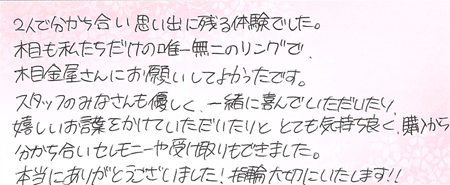 2人で分かち合い思い出に残る体験でした。
木目も私たちだけの唯一無二のリングで、
木目金屋さんにお願いしてよかったです。
スタッフのみなさんも優しく、一緒に喜んでいただいたり、
嬉しいお言葉をかけていただいたりと とても気持ち良く、購入から
分かち合いセレモニーや受け取りもできました。
本当にありがとうございました！指輪大切にいたします！！